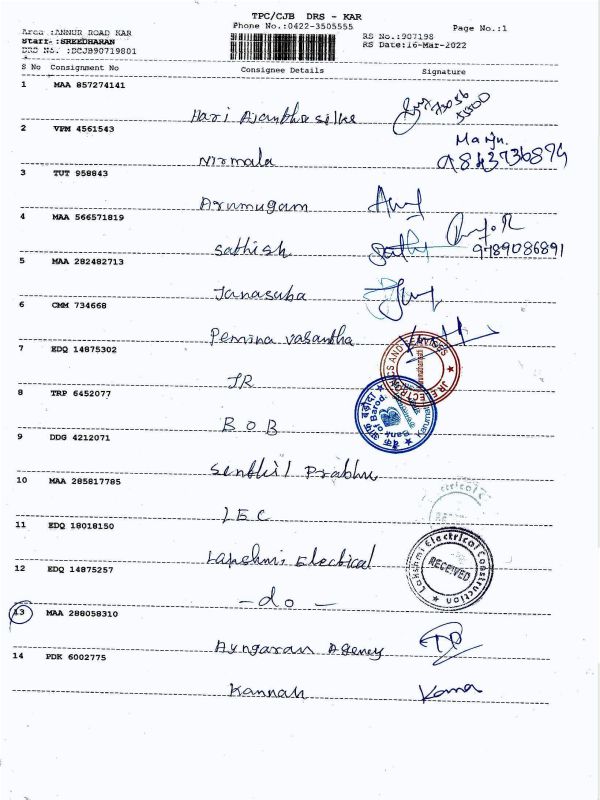 TPC/CJB DRS - KAR
Phone No.:0422-3505555
Page No.:1
Area :ANNUR ROAD KAR
Staff :SREEDHARAN
DRS No. :DCJB90719801
RS No.:907198
RS Date:16-Mar-2022
S No Consignment No Consignee Details Signature
1 MAA 857274141
Hari Ayantha silks 73056 55500
2 VPM 4561543
Nirmala Manju. 9843736874
3 TUT 958843
Arumugam
4 MAA 566571819
Sathish 9789086891
5 MAA 282482713
Janasuba
6 CMM 734668
Pemina vasantha
7 EDQ 14875302
JR
JR ELECTRONICS AND SERVICES
8 TRP 6452077
BOB
बैंक ऑफ़ बड़ौदा
Bank of Baroda
9 DDG 4212071
Senthil Prabhu
10 MAA 285817785
LEC
11 EDQ 18018150
Lakshmi Electical
Lakshmi Electrical Construction
RECEIVED
12 EDQ 14875257
- do -
13 MAA 288058310
Ayngaran Agency
14 PDK 6002775
Kannan Kanna